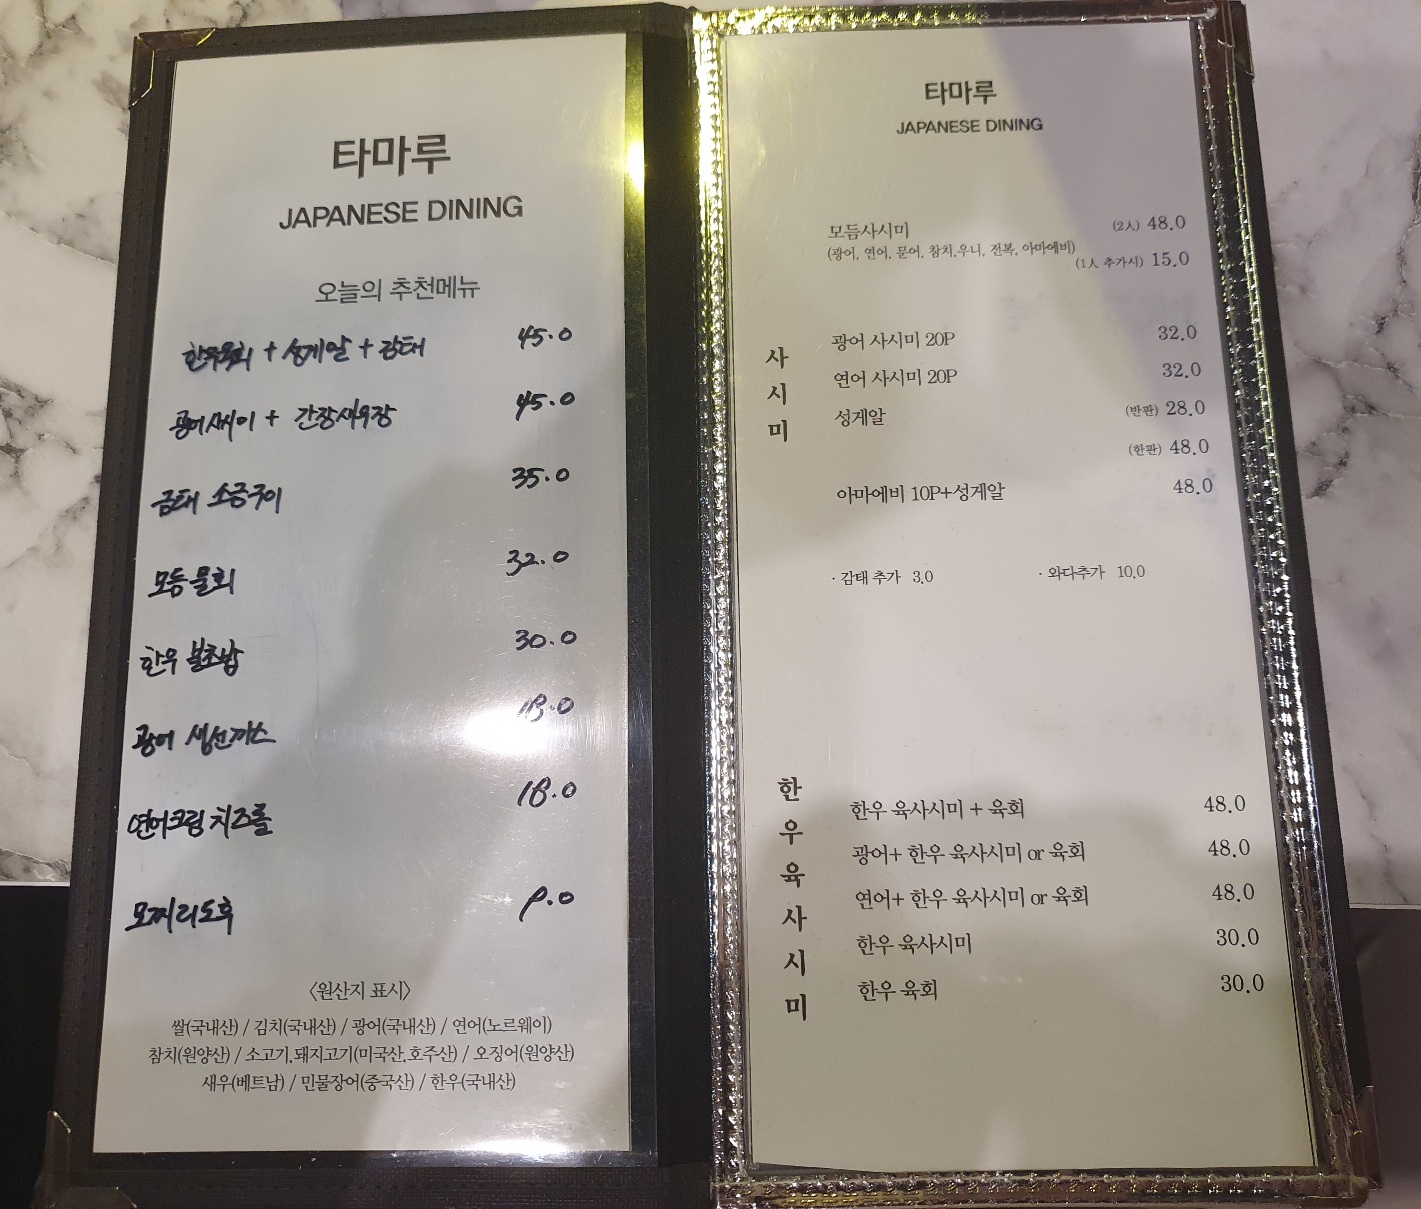 타마루
JAPANESE DINING
오늘의 추천메뉴
한우육회 + 성게알 + 감태 45.0
광어사시미 + 간장새우장 45.0
금태 소금구이 35.0
모듬물회 32.0
한우 불초밥 30.0
광어 생선까스 18.0
연어크림치즈롤 18.0
모찌리도후 9.0
〈원산지 표시〉
쌀(국내산) / 김치(국내산) / 광어(국내산) / 연어(노르웨이)
참치(원양산) / 소고기,돼지고기(미국산,호주산) / 오징어(원양산)
새우(베트남) / 민물장어(중국산) / 한우(국내산)
타마루
JAPANESE DINING
사시미
모듬사시미 (2人) 48.0
(광어, 연어, 문어, 참치,우니, 전복, 아마에비)
(1人 추가시) 15.0
광어 사시미 20P 32.0
연어 사시미 20P 32.0
성게알 (반판) 28.0
(한판) 48.0
아마에비 10P+성게알 48.0
· 감태 추가 3.0 · 와다추가 10.0
한우육사시미
한우 육사시미 + 육회 48.0
광어+ 한우 육사시미 or 육회 48.0
연어+ 한우 육사시미 or 육회 48.0
한우 육사시미 30.0
한우 육회 30.0